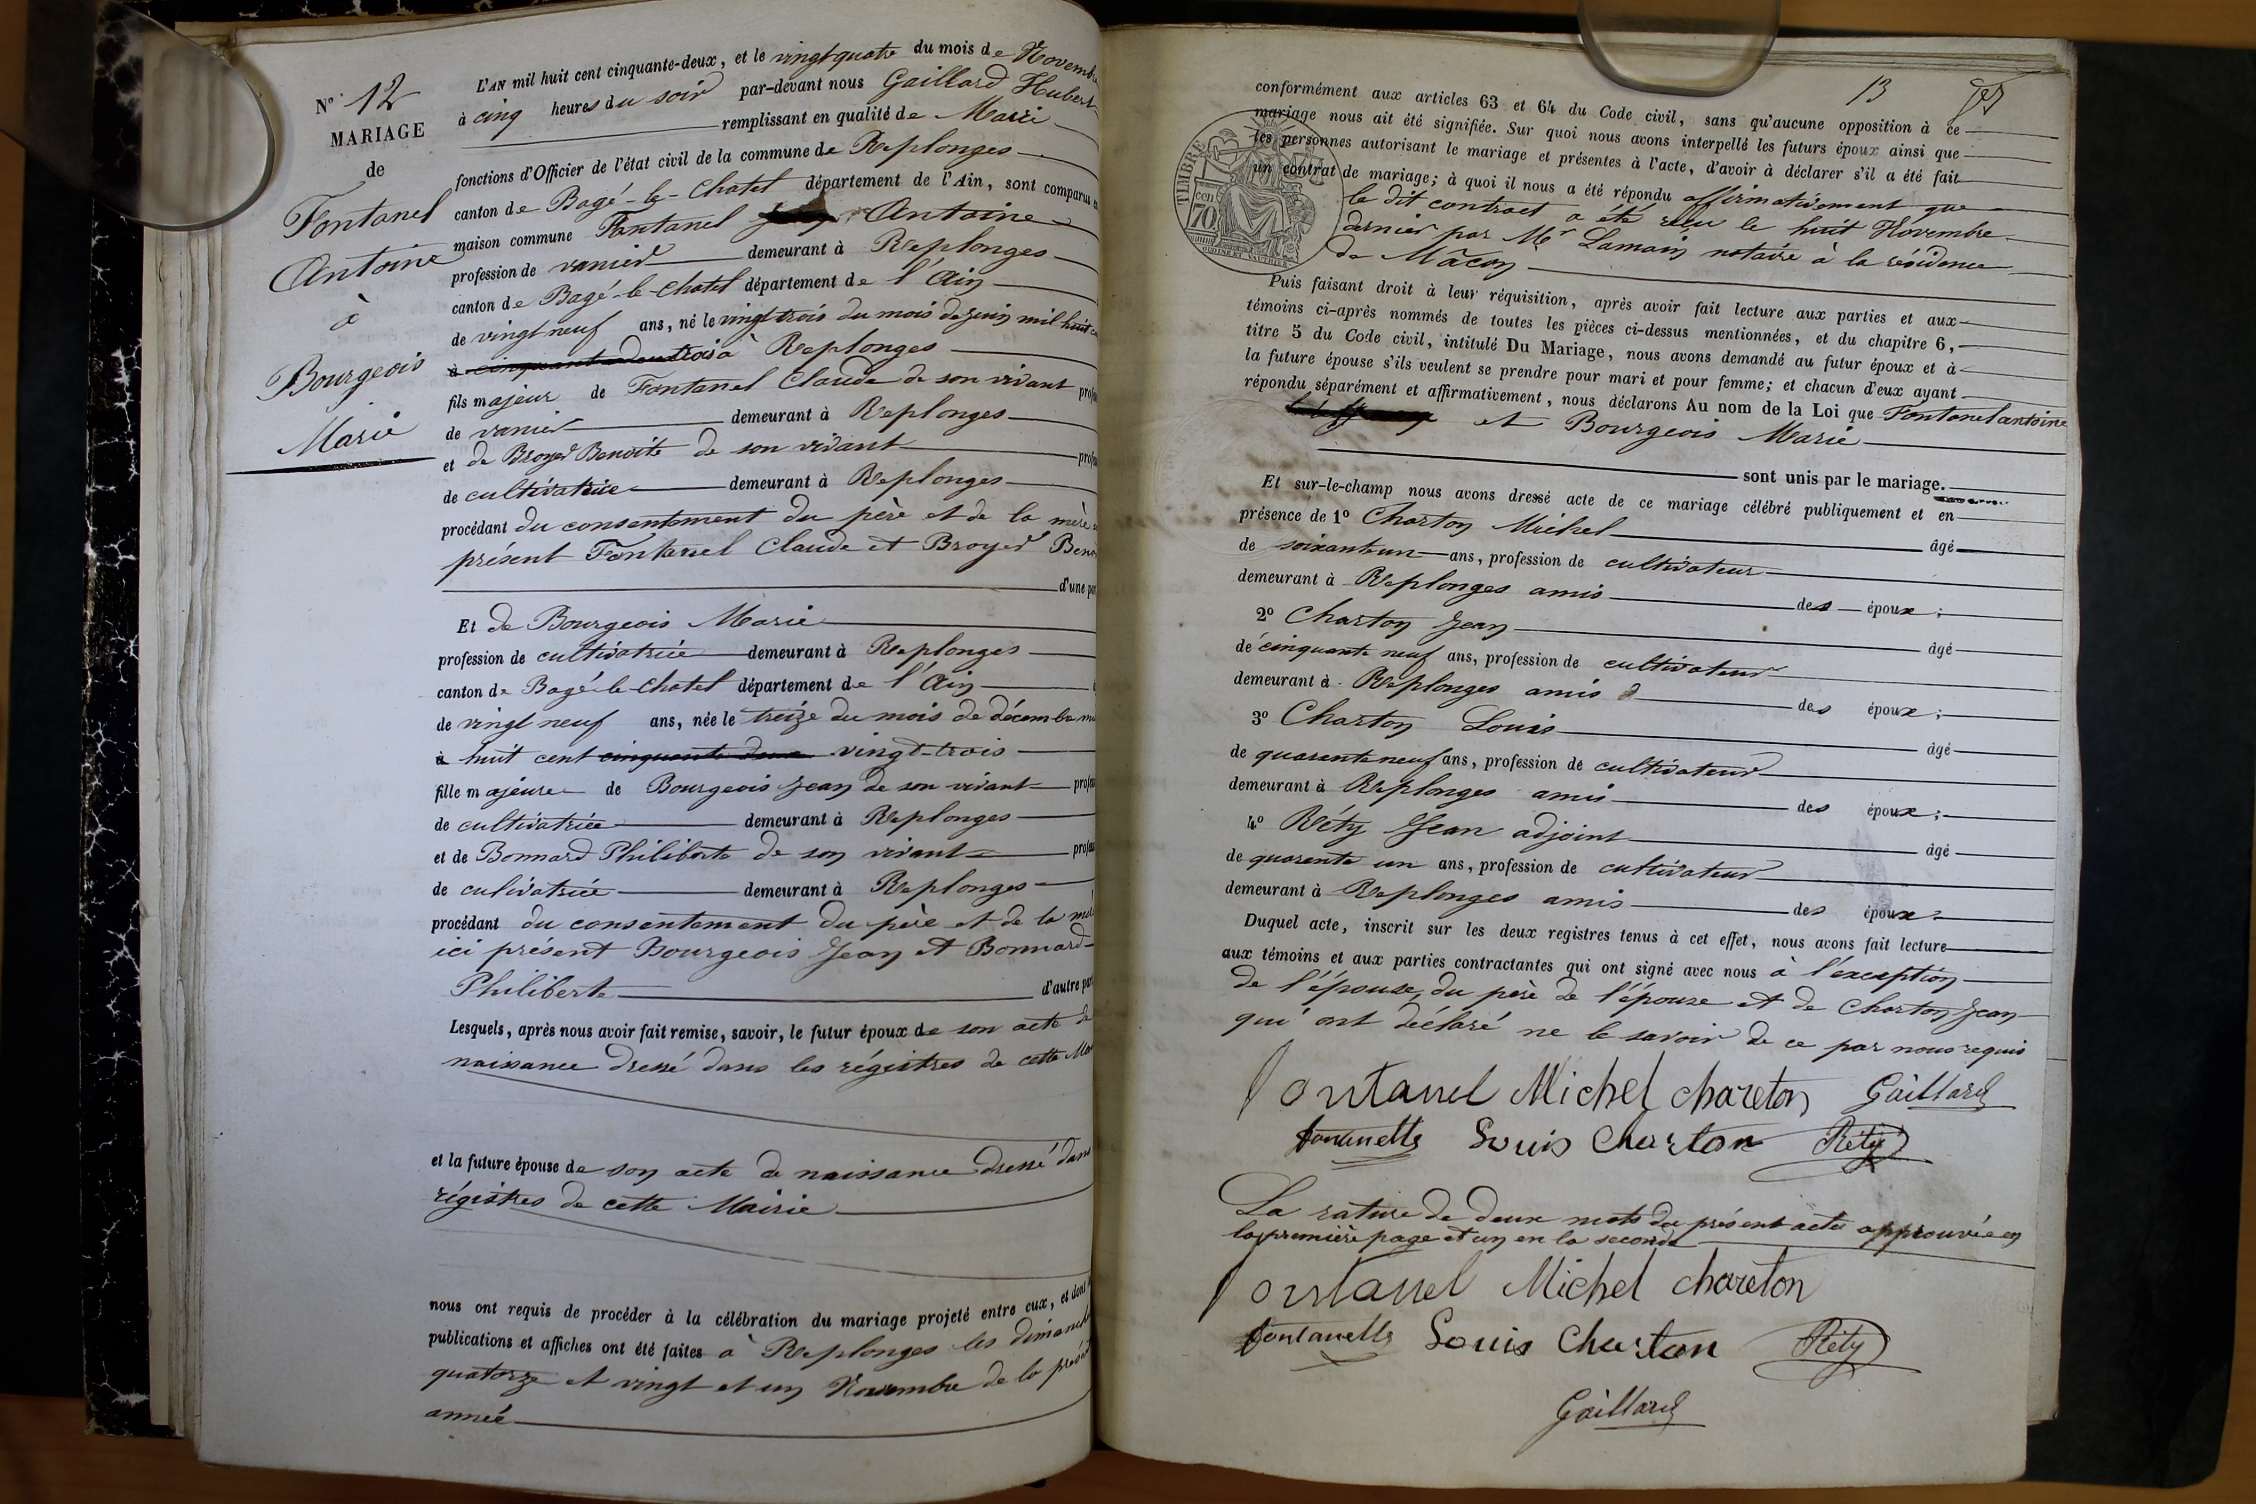 N° 12
MARIAGE
de
Fontanel
Antoine
à
Bourgeois
Marie
L'AN mil huit cent cinquante-deux, et le vingt quatre du mois de Novembre
à cinq heures du soir par-devant nous Gaillard Hubert
remplissant en qualité de Maire
fonctions d'Officier de l'état civil de la commune de Replonges
canton de Bagé-le-Chatel département de l'Ain, sont comparus
maison commune Fontanel Antoine
profession de vanier demeurant à Replonges
canton de Bagé-le-Chatel département de l'Ain
de vingt neuf ans, né le vingt trois du mois de juin mil huit
à Replonges
fils majeur de Fontanel Claude de son vivant
de vanier demeurant à Replonges
et de Broyer Benoite de son vivant
de cultivatrice demeurant à Replonges
procédant du consentement du père et de la mère
présent Fontanel Claude et Broyer
d'une
Et de Bourgeois Marie
profession de cultivatrice demeurant à Replonges
canton de Bagé-le-Chatel département de l'Ain
de vingt neuf ans, née le treize du mois de décembre
à huit cent cinquante deux vingt-trois
fille majeure de Bourgeois Jean de son vivant
de cultivatrice demeurant à Replonges
et de Bonnard Philiberte de son vivant
de culivatrice demeurant à Replonges
procédant du consentement du père et de la
ici présent Bourgeois Jean et Bonnard
Philiberte d'autre
Lesquels, après nous avoir fait remise, savoir, le futur époux de son acte de
naissance dressé dans les régistres de cette
et la future épouse de son acte de naissance dressé dans
régistres de cette Mairie
nous ont requis de procéder à la célébration du mariage projeté entre eux, et dont
publications et affiches ont été faites à Replonges les
quatorze et vingt et un Novembre de la
année
13
conformément aux articles 63 et 64 du Code civil, sans qu'aucune opposition à ce
mariage nous ait été signifiée. Sur quoi nous avons interpellé les futurs époux ainsi que
les personnes autorisant le mariage et présentes à l'acte, d'avoir à déclarer s'il a été fait
un contrat de mariage; à quoi il nous a été répondu affirmativement que
le dit contract a été reçu le huit Novembre
dernier par Mr Lamain notaire à la résidence
de Mâcon
TIMBRE
70
Puis faisant droit à leur réquisition, après avoir fait lecture aux parties et aux
témoins ci-après nommés de toutes les pièces ci-dessus mentionnées, et du chapitre 6,
titre 5 du Code civil, intitulé Du Mariage, nous avons demandé au futur époux et à
la future épouse s'ils veulent se prendre pour mari et pour femme; et chacun d'eux ayant
répondu séparément et affirmativement, nous déclarons Au nom de la Loi que Fontanel antoine
et Bourgeois Marie
sont unis par le mariage.
Et sur-le-champ nous avons dressé acte de ce mariage célébré publiquement et en
présence de 1° Charton Michel âgé
de soixante un ans, profession de cultivateur
demeurant à Replonges amis des époux;
2° Charton Jean âgé
de cinquante neuf ans, profession de cultivateur
demeurant à Replonges amis des époux;
3° Charton Louis âgé
de quarente neuf ans, profession de cultivateur
demeurant à Replonges amis des époux;
4° Réty Jean adjoint âgé
de quarente un ans, profession de cultivateur
demeurant à Replonges amis des époux
Duquel acte, inscrit sur les deux registres tenus à cet effet, nous avons fait lecture
aux témoins et aux parties contractantes qui ont signé avec nous à l'éxception
de l'épouse, du père de l'épouse et de Charton Jean
qui ont déclaré ne le savoir de ce par nous requis
fontanel Michel chareton Gaillard
fontanelle Louis Charton Réty
La rature de deux mots du présent acte approuvée en
la première page et un en la seconde
fontanel Michel chareton
fontanelle Louis Charton Réty
Gaillard